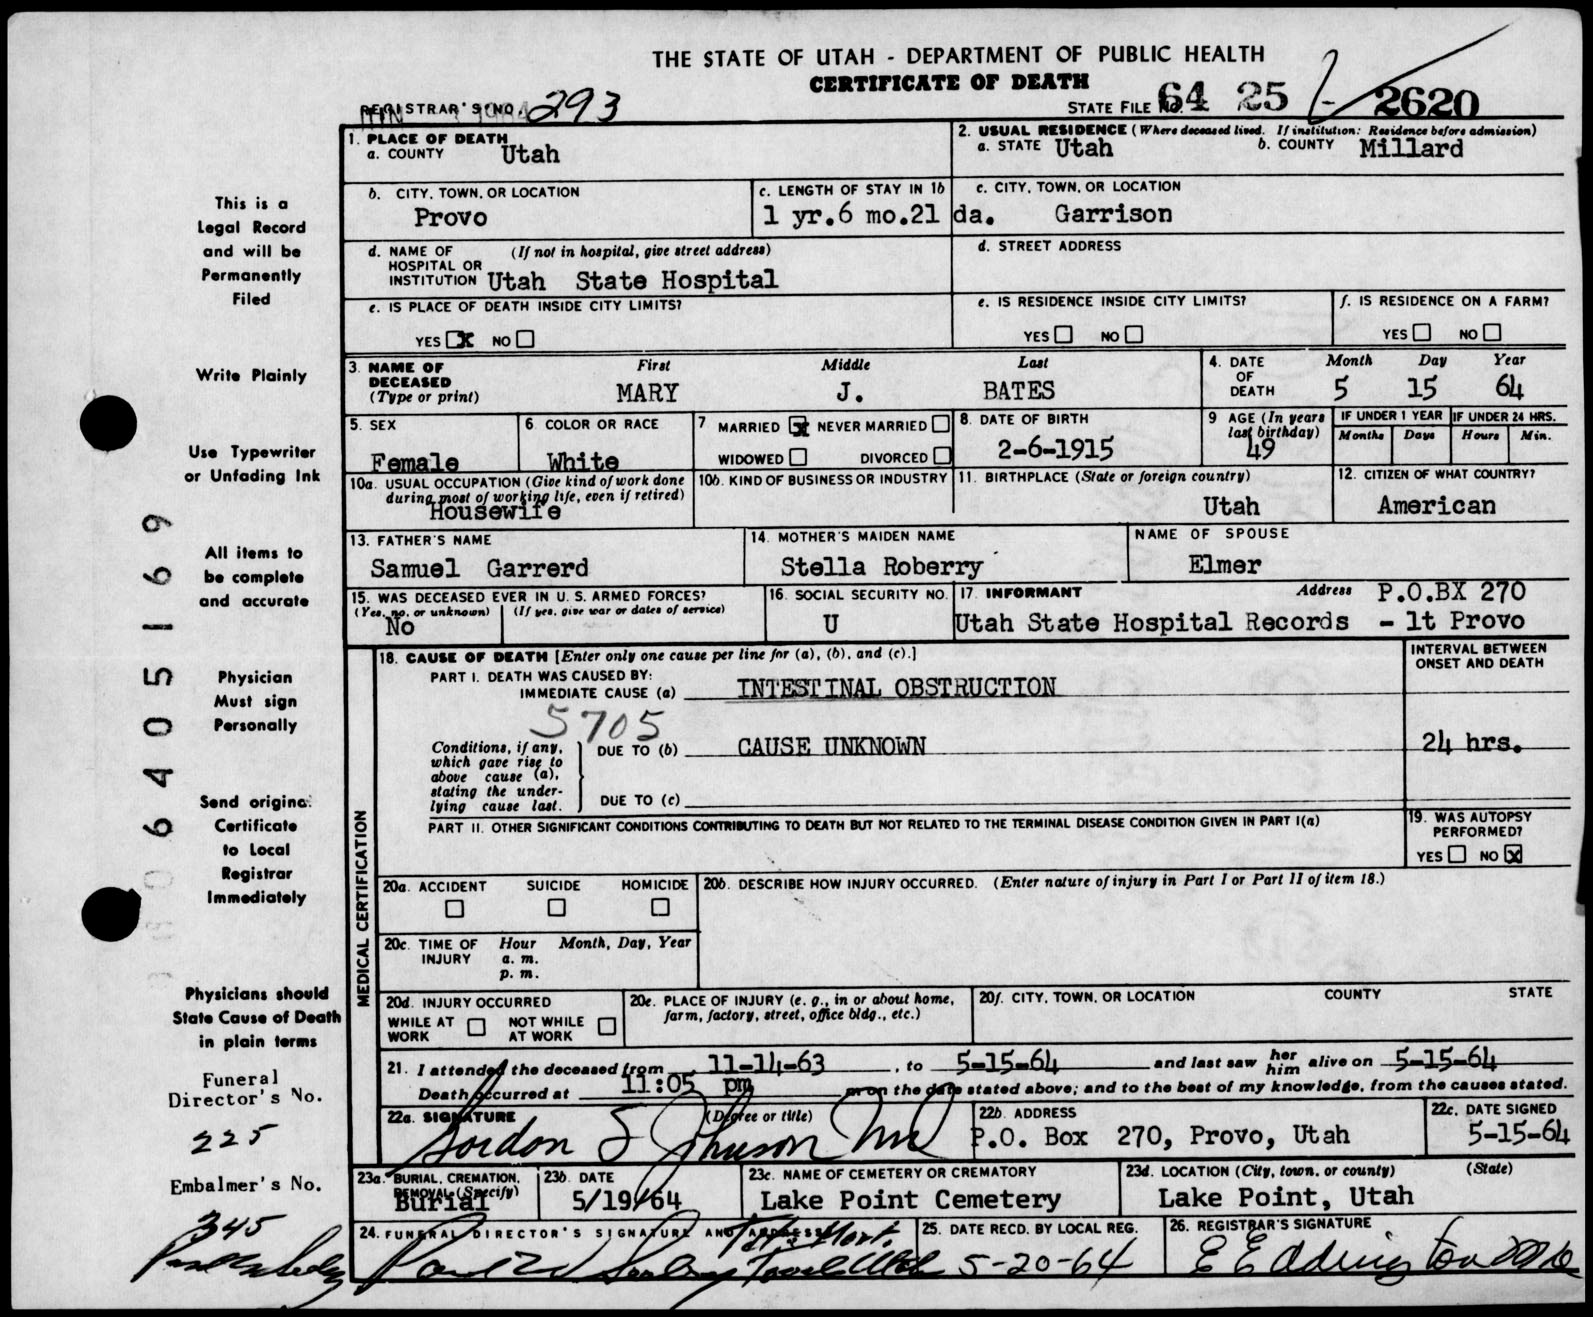 THE STATE OF UTAH - DEPARTMENT OF PUBLIC HEALTH
CERTIFICATE OF DEATH
REGISTRAR'S NO. 293
STATE FILE NO. 64 25 - 2620
This is a
Legal Record
and will be
Permanently
Filed
Write Plainly
Use Typewriter
or Unfading Ink
All items to
be complete
and accurate
Physician
Must sign
Personally
Send original
Certificate
to Local
Registrar
Immediately
Physicians should
State Cause of Death
in plain terms
Funeral
Director's No.
225
Embalmer's No.
345
06405169
1. PLACE OF DEATH
a. COUNTY Utah
2. USUAL RESIDENCE (Where deceased lived. If institution: Residence before admission)
a. STATE Utah b. COUNTY Millard
b. CITY, TOWN, OR LOCATION
Provo
c. LENGTH OF STAY IN 1b
1 yr.6 mo.21 da.
c. CITY, TOWN, OR LOCATION
Garrison
d. NAME OF (If not in hospital, give street address)
HOSPITAL OR
INSTITUTION Utah State Hospital
d. STREET ADDRESS
e. IS PLACE OF DEATH INSIDE CITY LIMITS?
YES X NO
e. IS RESIDENCE INSIDE CITY LIMITS?
YES NO
f. IS RESIDENCE ON A FARM?
YES NO
3. NAME OF DECEASED
(Type or print)
First Middle Last
MARY J. BATES
4. DATE OF DEATH
Month Day Year
5 15 64
5. SEX
Female
6. COLOR OR RACE
White
7 MARRIED X NEVER MARRIED
WIDOWED DIVORCED
8. DATE OF BIRTH
2-6-1915
9 AGE (In years
last birthday)
49
IF UNDER 1 YEAR IF UNDER 24 HRS.
Months Days Hours Min.
10a. USUAL OCCUPATION (Give kind of work done
during most of working life, even if retired)
Housewife
10b. KIND OF BUSINESS OR INDUSTRY
11. BIRTHPLACE (State or foreign country)
Utah
12. CITIZEN OF WHAT COUNTRY?
American
13. FATHER'S NAME
Samuel Garrerd
14. MOTHER'S MAIDEN NAME
Stella Roberry
NAME OF SPOUSE
Elmer
15. WAS DECEASED EVER IN U. S. ARMED FORCES?
(Yes, no, or unknown) (If yes, give war or dates of service)
No
16. SOCIAL SECURITY NO.
U
17. INFORMANT Address P.O.BX 270
Utah State Hospital Records - 1t Provo
MEDICAL CERTIFICATION
18. CAUSE OF DEATH [Enter only one cause per line for (a), (b), and (c).]
INTERVAL BETWEEN
ONSET AND DEATH
PART I. DEATH WAS CAUSED BY:
IMMEDIATE CAUSE (a) INTESTINAL OBSTRUCTION
5705
Conditions, if any,
which gave rise to
above cause (a),
stating the under-
lying cause last.
DUE TO (b) CAUSE UNKNOWN
24 hrs.
DUE TO (c)
PART II. OTHER SIGNIFICANT CONDITIONS CONTRIBUTING TO DEATH BUT NOT RELATED TO THE TERMINAL DISEASE CONDITION GIVEN IN PART I(a)
19. WAS AUTOPSY
PERFORMED?
YES NO X
20a. ACCIDENT SUICIDE HOMICIDE
20b. DESCRIBE HOW INJURY OCCURRED. (Enter nature of injury in Part I or Part II of item 18.)
20c. TIME OF INJURY
Hour Month, Day, Year
a. m.
p. m.
20d. INJURY OCCURRED
WHILE AT WORK NOT WHILE AT WORK
20e. PLACE OF INJURY (e. g., in or about home,
farm, factory, street, office bldg., etc.)
20f. CITY, TOWN, OR LOCATION COUNTY STATE
21. I attended the deceased from 11-14-63, to 5-15-64 and last saw her him alive on 5-15-64
Death occurred at 11:05 pm m on the date stated above; and to the best of my knowledge, from the causes stated.
22a. SIGNATURE (Degree or title)
Gordon S Johnson MD
22b. ADDRESS
P.O. Box 270, Provo, Utah
22c. DATE SIGNED
5-15-64
23a. BURIAL, CREMATION,
REMOVAL (Specify)
Burial
23b. DATE
5/19/64
23c. NAME OF CEMETERY OR CREMATORY
Lake Point Cemetery
23d. LOCATION (City, town, or county) (State)
Lake Point, Utah
24. FUNERAL DIRECTOR'S SIGNATURE AND ADDRESS
25. DATE RECD. BY LOCAL REG.
5-20-64
26. REGISTRAR'S SIGNATURE
E E Eddington